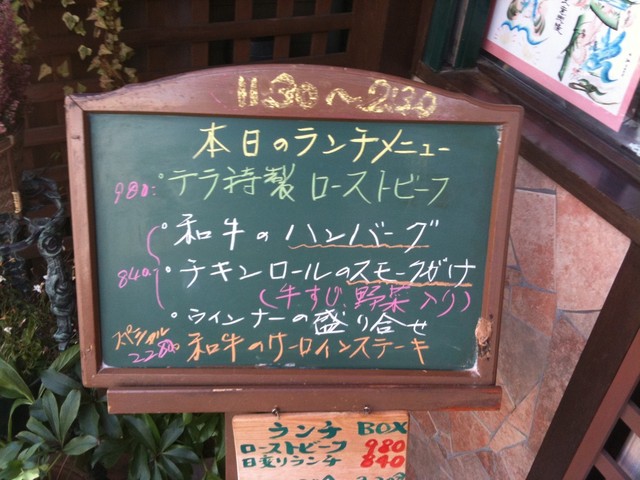 11:30〜2:30
本日のランチメニュー
980: °テラ特製 ローストビーフ
°和牛のハンバーグ
840 °チキンロールのスモークがけ
(牛すじ、野菜入り)
°ウインナーの盛り合せ
スペシャル
2280 和牛のサーロインステーキ
ランチ BOX
ローストビーフ 980
日変りランチ 840